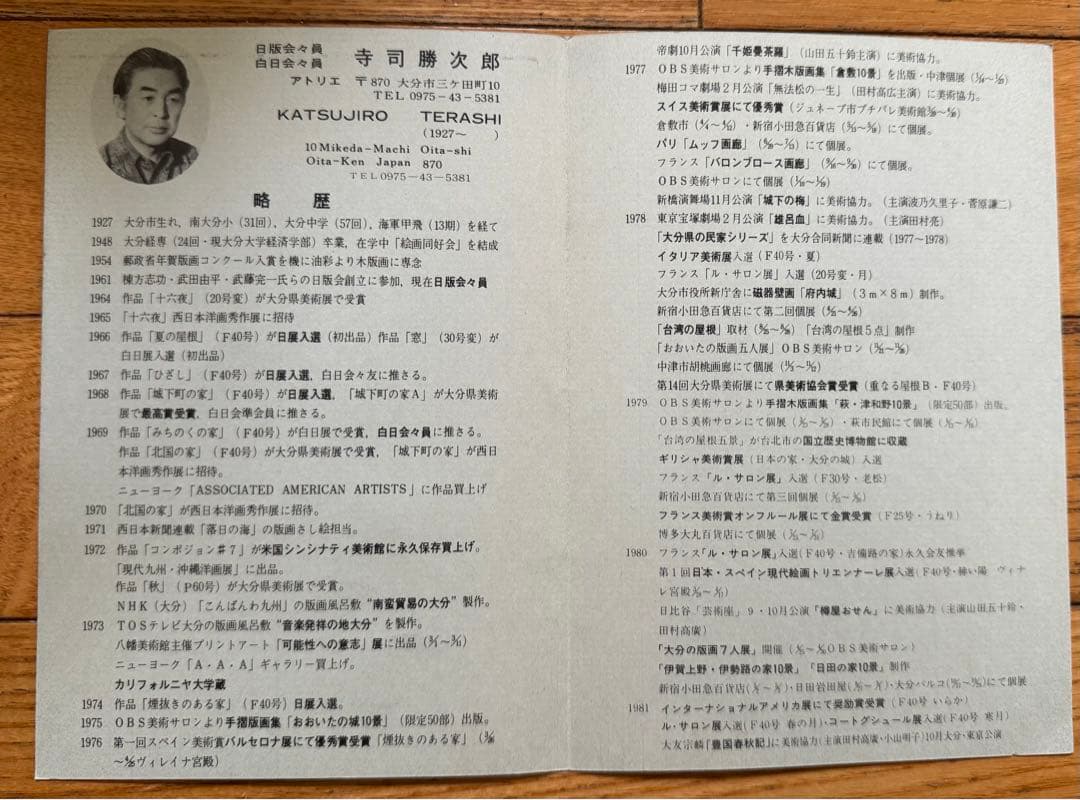 日版会々員
白日会々員
寺司勝次郎
アトリエ 〒870 大分市三ケ田町10
TEL 0975-43-5381
KATSUJIRO TERASHI
(1927~ )
10 Mikeda-Machi Oita-shi
Oita-Ken Japan 870
TEL 0975-43-5381
略歴
1927 大分市生れ，南大分小（31回），大分中学（57回），海軍甲飛（13期）を経て
1948 大分経専（24回・現大分大学経済学部）卒業，在学中「絵画同好会」を結成
1954 郵政省年賀版画コンクール入賞を機に油彩より木版画に専念
1961 棟方志功・武田由平・武藤完一氏らの日版会創立に参加，現在日版会々員
1964 作品「十六夜」（20号変）が大分県美術展で受賞
1965 「十六夜」西日本洋画秀作展に招待
1966 作品「夏の屋根」（F40号）が日展入選（初出品）作品「窓」（30号変）が
白日展入選（初出品）
1967 作品「ひざし」（F40号）が日展入選，白日会々友に推さる。
1968 作品「城下町の家」（F40号）が日展入選，「城下町の家A」が大分県美術
展で最高賞受賞，白日会準会員に推さる。
1969 作品「みちのくの家」（F40号）が白日展で受賞，白日会々員に推さる。
作品「北国の家」（F40号）が大分県美術展で受賞，「城下町の家」が西日
本洋画秀作展に招待。
ニューヨーク「ASSOCIATED AMERICAN ARTISTS」に作品買上げ
1970 「北国の家」が西日本洋画秀作展に招待。
1971 西日本新聞連載「落日の海」の版画さし絵担当。
1972 作品「コンポジョン＃7」が米国シンシナティ美術館に永久保存買上げ。
「現代九州・沖縄洋画展」に出品。
作品「秋」（P60号）が大分県美術展で受賞。
NHK（大分）「こんばんわ九州」の版画風呂敷“南蛮貿易の大分”製作。
1973 TOSテレビ大分の版画風呂敷“音楽発祥の地大分”を製作。
八幡美術館主催プリントアート「可能性への意志」展に出品
ニューヨーク「A・A・A」ギャラリー買上げ。
カリフォルニヤ大学蔵
1974 作品「煙抜きのある家」（F40号）日展入選。
1975 OBS美術サロンより手摺版画集「おおいたの城10景」（限定50部）出版。
1976 第一回スペイン美術賞バルセロナ展にて優秀賞受賞「煙抜きのある家」
ヴィレイナ宮殿）
帝劇10月公演「千姫曼荼羅」（山田五十鈴主演）に美術協力。
1977 OBS美術サロンより手摺木版画集「倉敷10景」を出版・中津個展
梅田コマ劇場2月公演「無法松の一生」（田村高広主演）に美術協力。
スイス美術賞展にて優秀賞（ジュネーブ市プチパレ美術館
倉敷市・新宿小田急百貨店にて個展。
パリ「ムッフ画廊」にて個展。
フランス「バロンブロース画廊」にて個展。
OBS美術サロンにて個展
新橋演舞場11月公演「城下の梅」に美術協力。（主演波乃久里子・菅原謙二）
1978 東京宝塚劇場2月公演「雄呂血」に美術協力。（主演田村亮）
「大分県の民家シリーズ」を大分合同新聞に連載（1977～1978）
イタリア美術展入選（F40号・夏）
フランス「ル・サロン展」入選（20号変・月）
大分市役所新庁舎に磁器壁画「府内城」（3m×8m）制作。
新宿小田急百貨店にて第二回個展
「台湾の屋根」取材「台湾の屋根5点」制作
「おおいたの版画五人展」OBS美術サロン
中津市胡桃画廊にて個展
第14回大分県美術展にて県美術協会賞受賞（重なる屋根B・F40号）
1979 OBS美術サロンより手摺木版画集「萩・津和野10景」（限定50部）出版。
OBS美術サロンにて個展・萩市民館にて個展
「台湾の屋根五景」が台北市の国立歴史博物館に収蔵
ギリシャ美術賞展（日本の家・大分の城）入選
フランス「ル・サロン展」入選（F30号・老松）
新宿小田急百貨店にて第三回個展
フランス美術賞オンフルール展にて金賞受賞（F25号・うねり）
博多大丸百貨店にて個展
1980 フランス「ル・サロン展」入選（F40号・吉備路の家）永久会友推挙
第1回日本・スペイン現代絵画トリエンナーレ展入選（F40号・赫い陽 ヴィナ
レ宮殿
日比谷「芸術座」9・10月公演「樽屋おせん」に美術協力（主演山田五十鈴・
田村高廣）
「大分の版画7人展」開催（OBS美術サロン）
「伊賀上野・伊勢路の家10景」「日田の家10景」制作
新宿小田急百貨店・日田岩田屋・大分パルコにて個展
1981 インターナショナルアメリカ展にて奨励賞受賞（F40号 いらか）
ル・サロン展入選（F40号 春の月）・コートグシュール展入選（F40号 寒月）
大友宗麟「豊国春秋記」に美術協力（主演田村高廣・小山明子）10月大分・東京公演